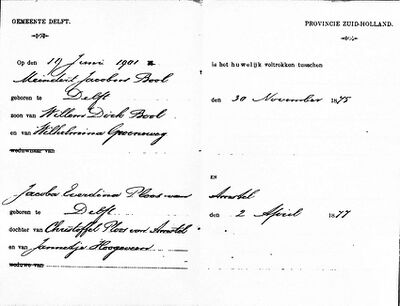 GEMEENTE DELFT.
PROVINCIE ZUID-HOLLAND.
Op den 19 Juni 1901
is het huwelijk voltrokken tusschen
Meindert Jacobus Bool
geboren te Delft
den 30 November 1875
zoon van Willem Dirk Bool
en van Wilhelmina Groeneweg
weduwnaar van
EN
Jacoba Everdina Ploos van Amstel
geboren te Delft
den 2 April 1877
dochter van Christoffel Ploos van Amstel
en van Jannetje Hoogeveen
weduwe van